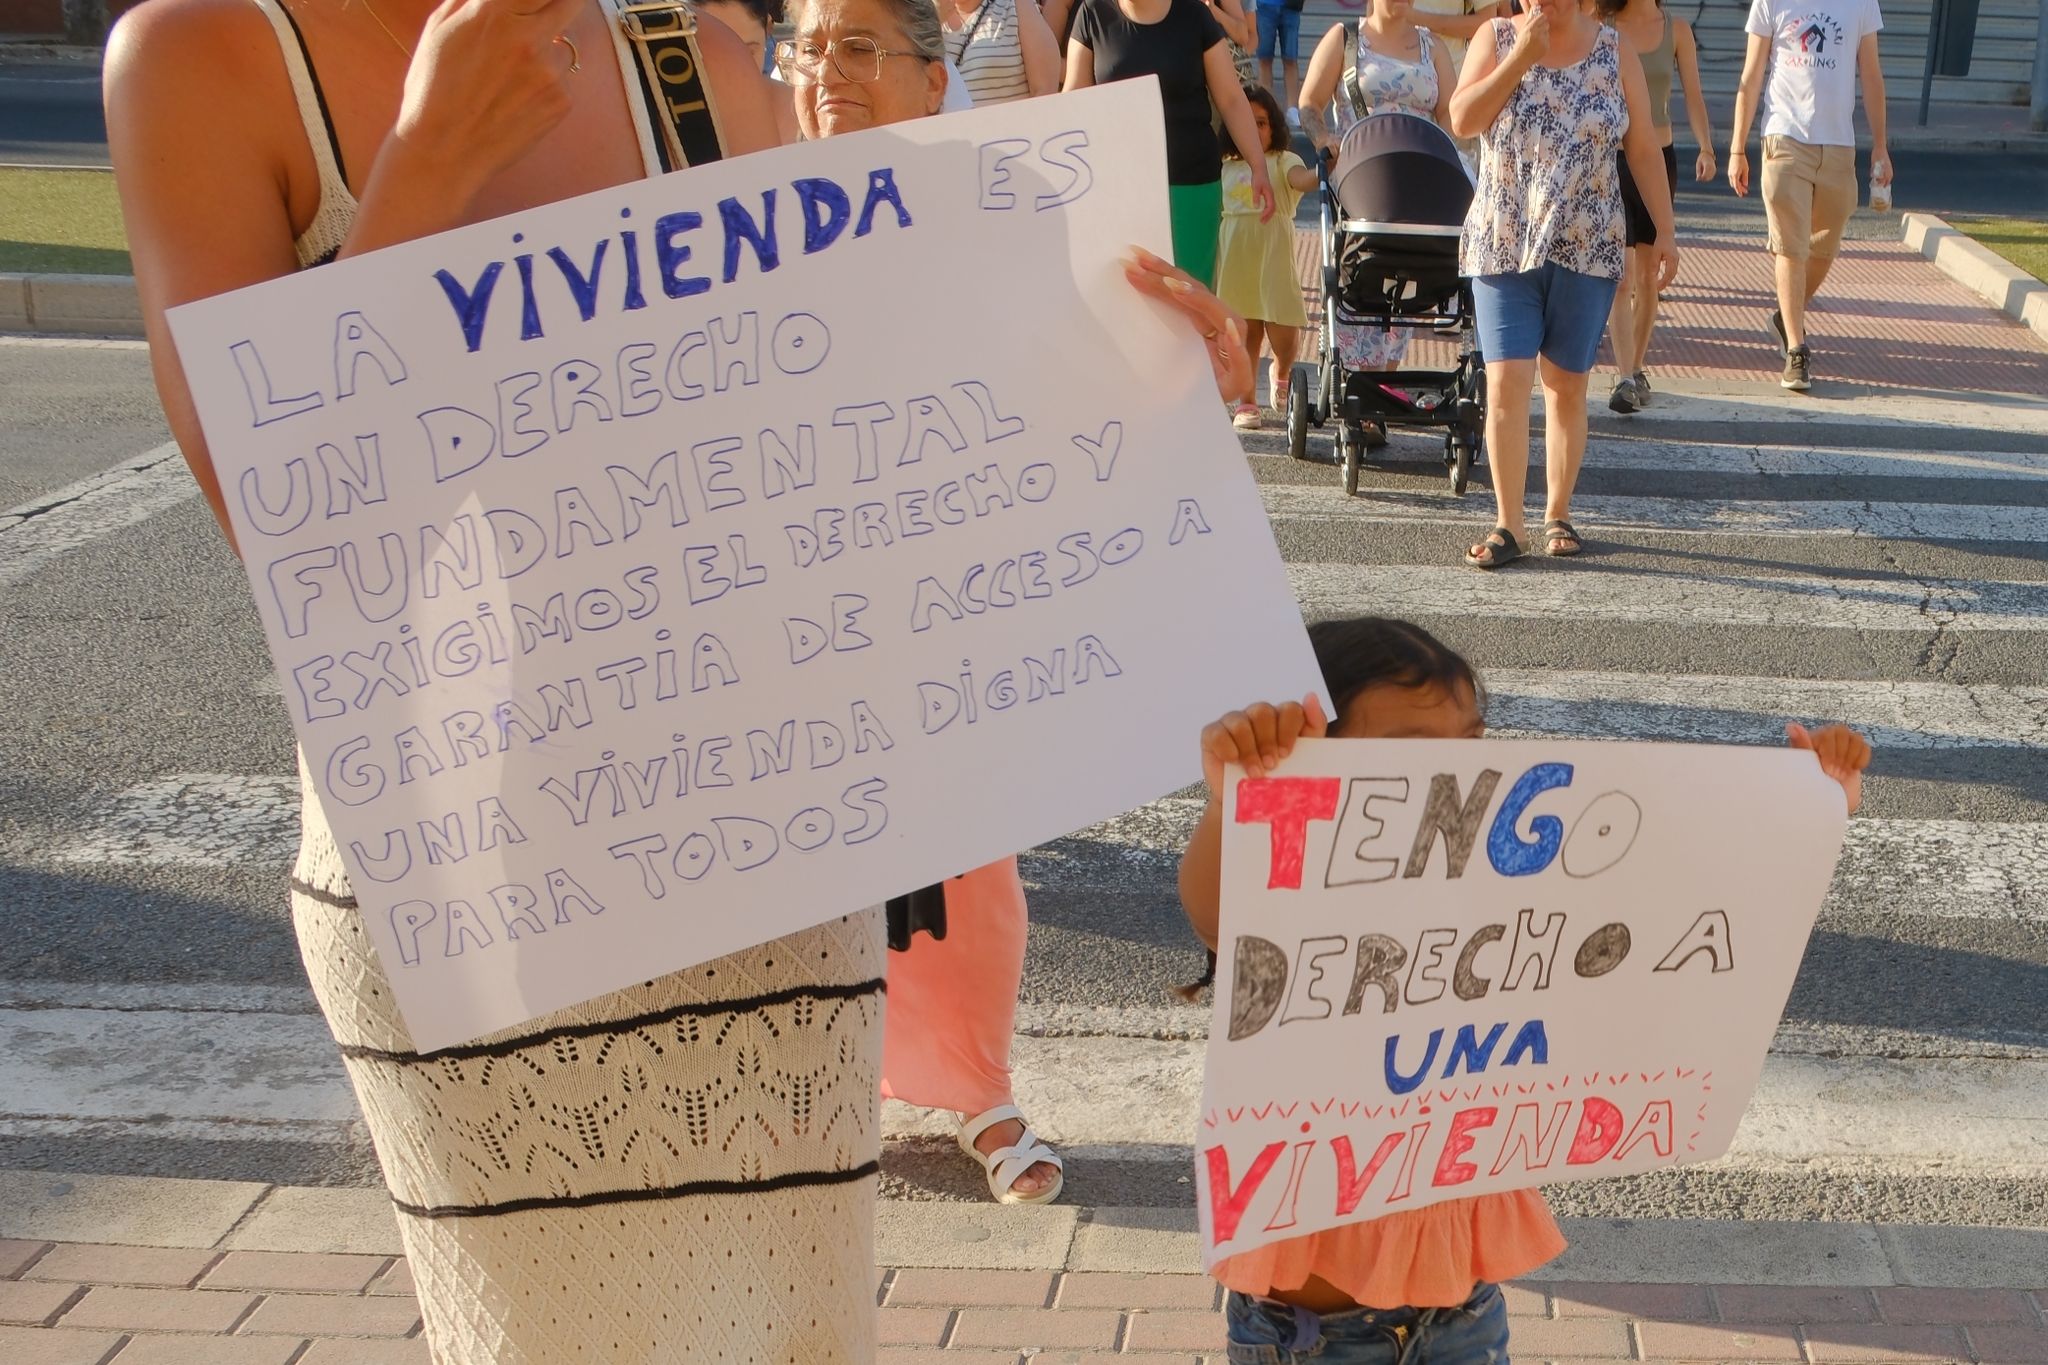 LA VIVIENDA ES
UN DERECHO
FUNDAMENTAL
EXIGIMOS EL DERECHO Y
GARANTIA DE ACCESO A
UNA VIVIENDA DIGNA
PARA TODOS
TENGO
DERECHO A
UNA
VIVIENDA
CAROLINES